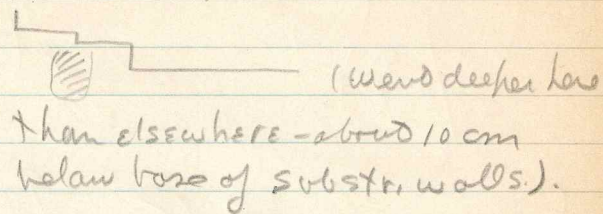 (went deeper here
than elsewhere - about 10 cm
below base of substr. walls.).